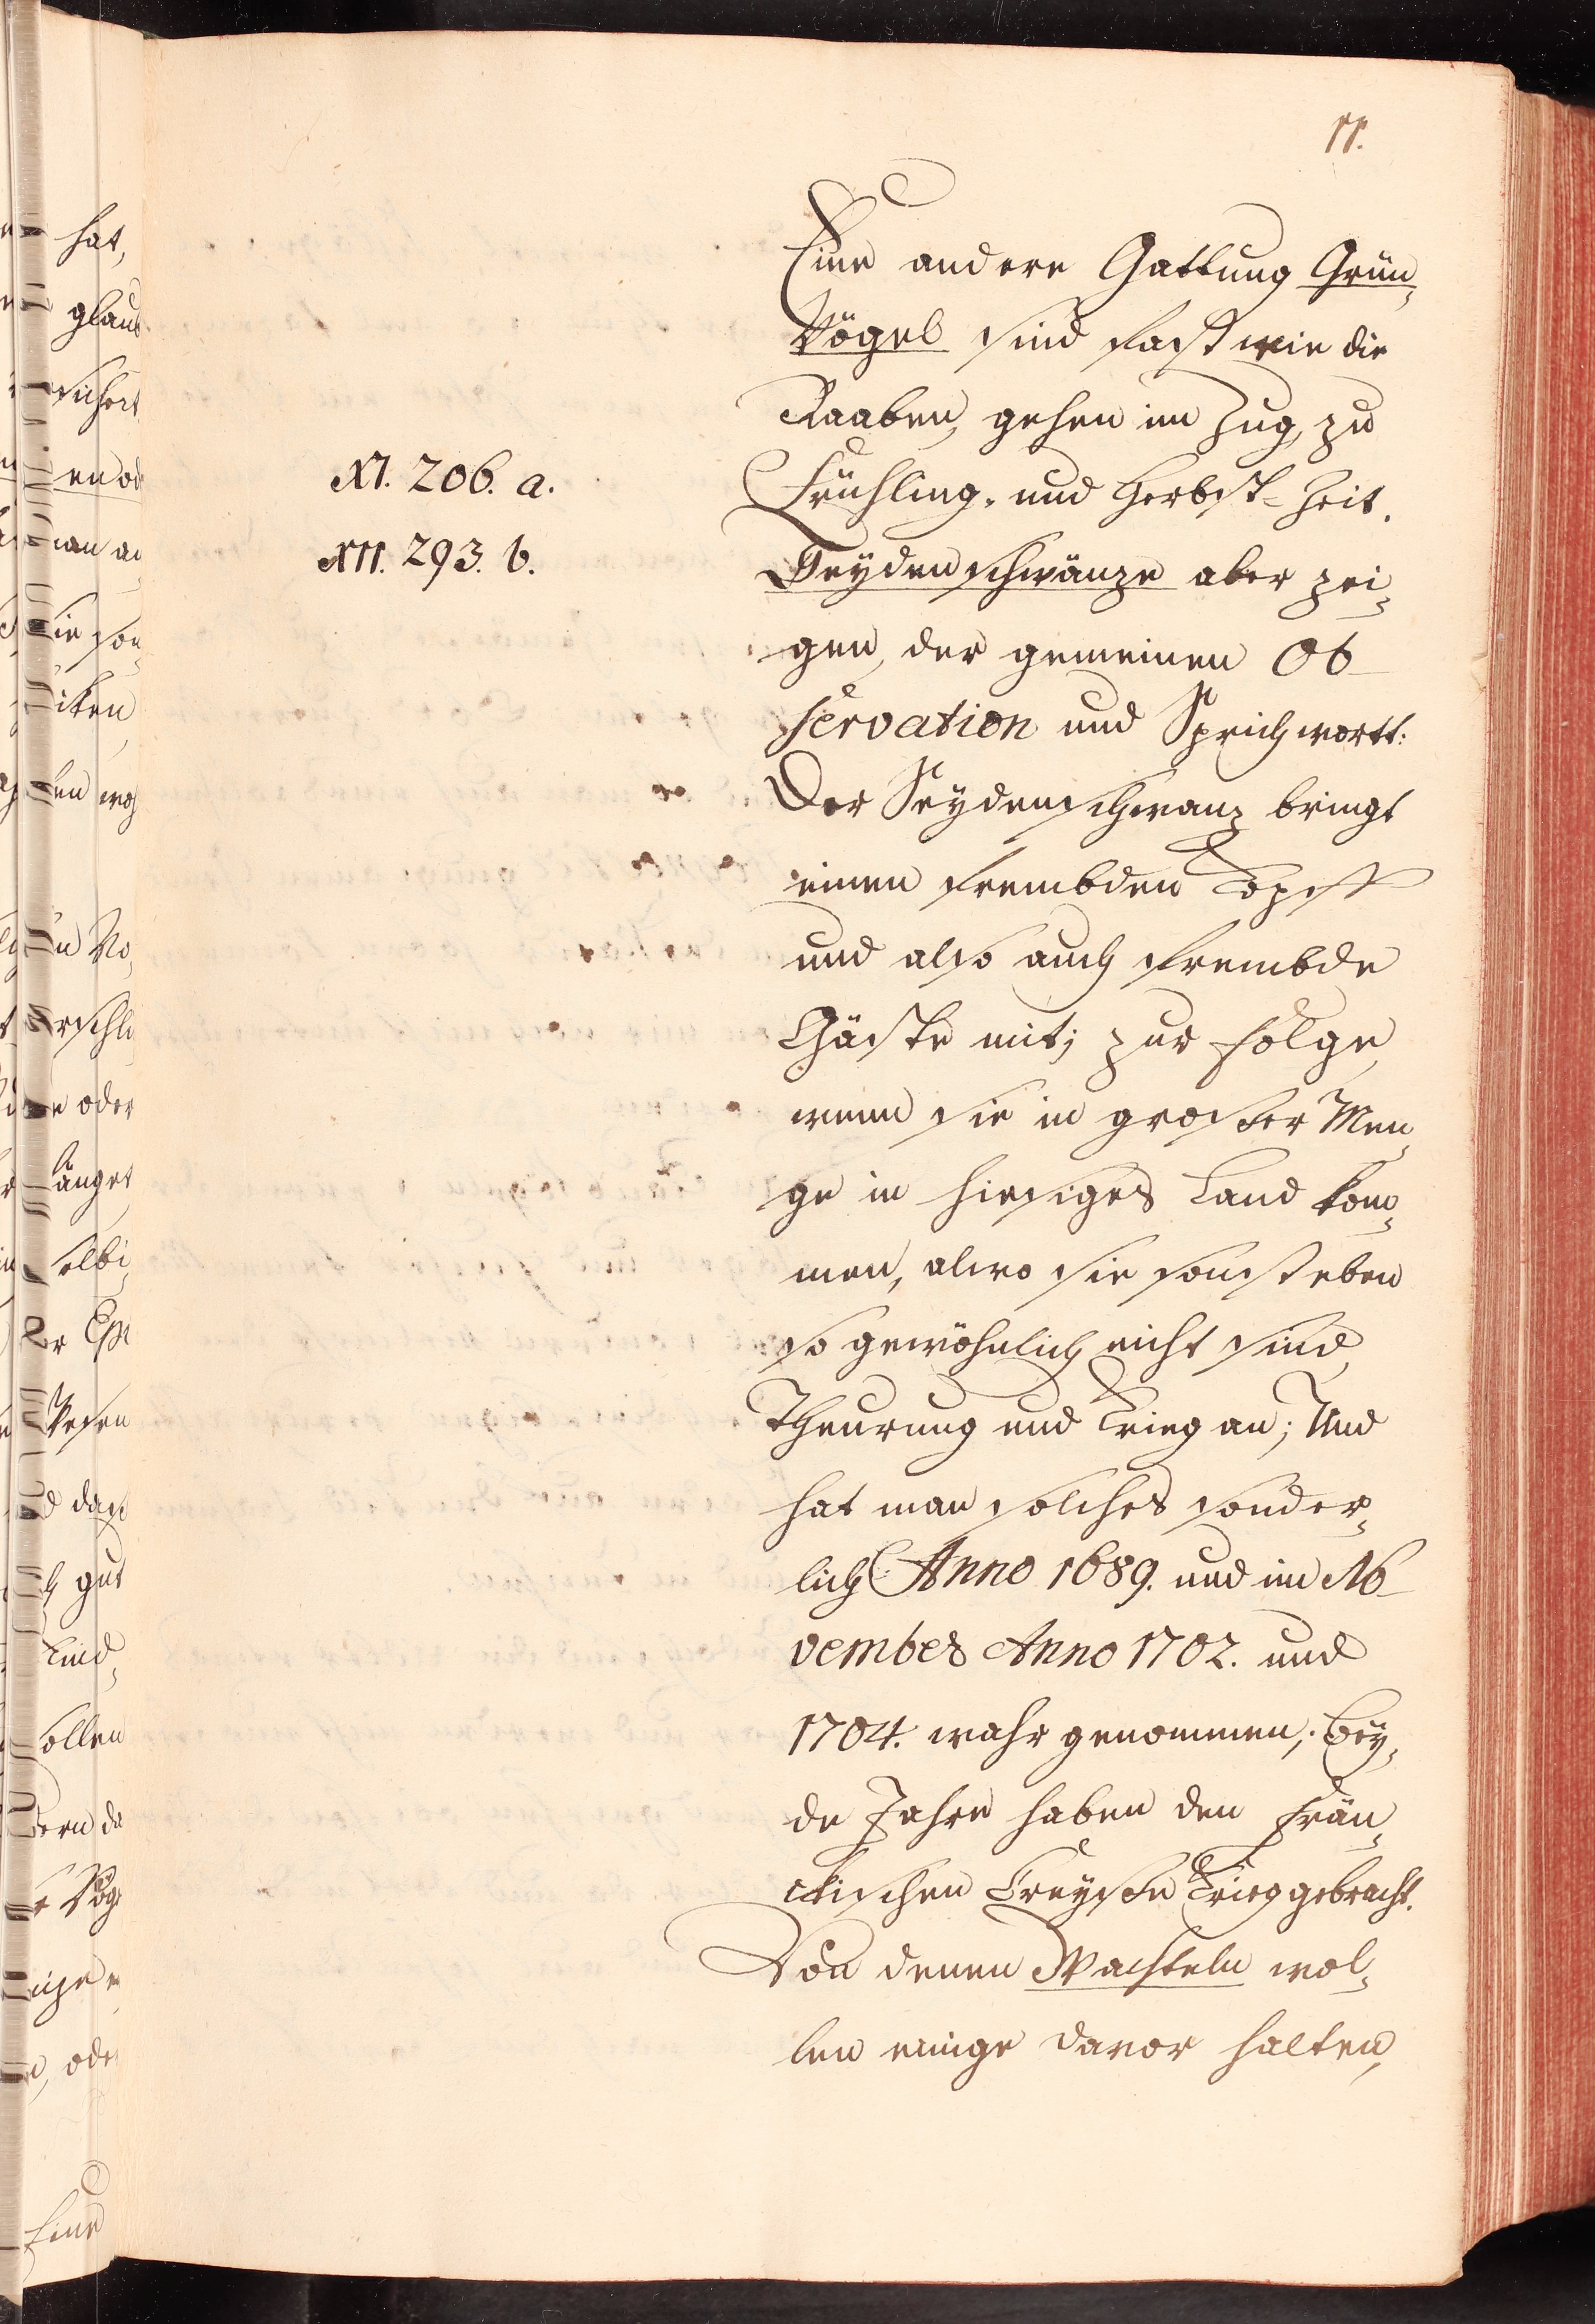 11.
Eine andere Gattung Grün-
Vögel sind fast wie die
Raaben, gehen im Zug, zu
Frühling- und Herbst-Zeit.
XI. 206. a.
XII. 293. b.
Seydenschwänze aber zei-
gen, der gemeinen Ob-
servation und Sprichwortt:
Der Seydenschwanz bringt
einen frembden Kopff
und also auch frembde
Gäste mit; zur Folge,
wenn sie in grosser Men-
ge in hiesiges Land kom-
men, alwo sie sonst eben
so gewöhnlich nicht sind,
Theurung und Krieg an; Und
hat man solches sonder-
lich Anno 1689. und im No-
vember Anno 1702. und
1704. wahr genommen; Bey-
de Jahre haben den Frän-
ckischen Creysse Krieg gebracht.
Von denen Wachteln wol-
len einige davor halten,
hat,
glaub
oder
länget
selbi
gut
sollen
Eine